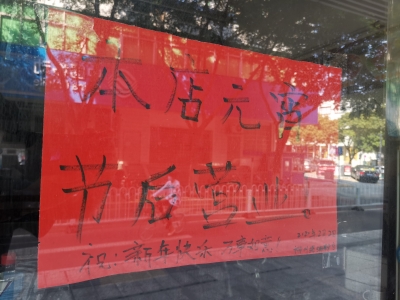 本店元宵
节后营业。
祝:新年快乐 万事如意!